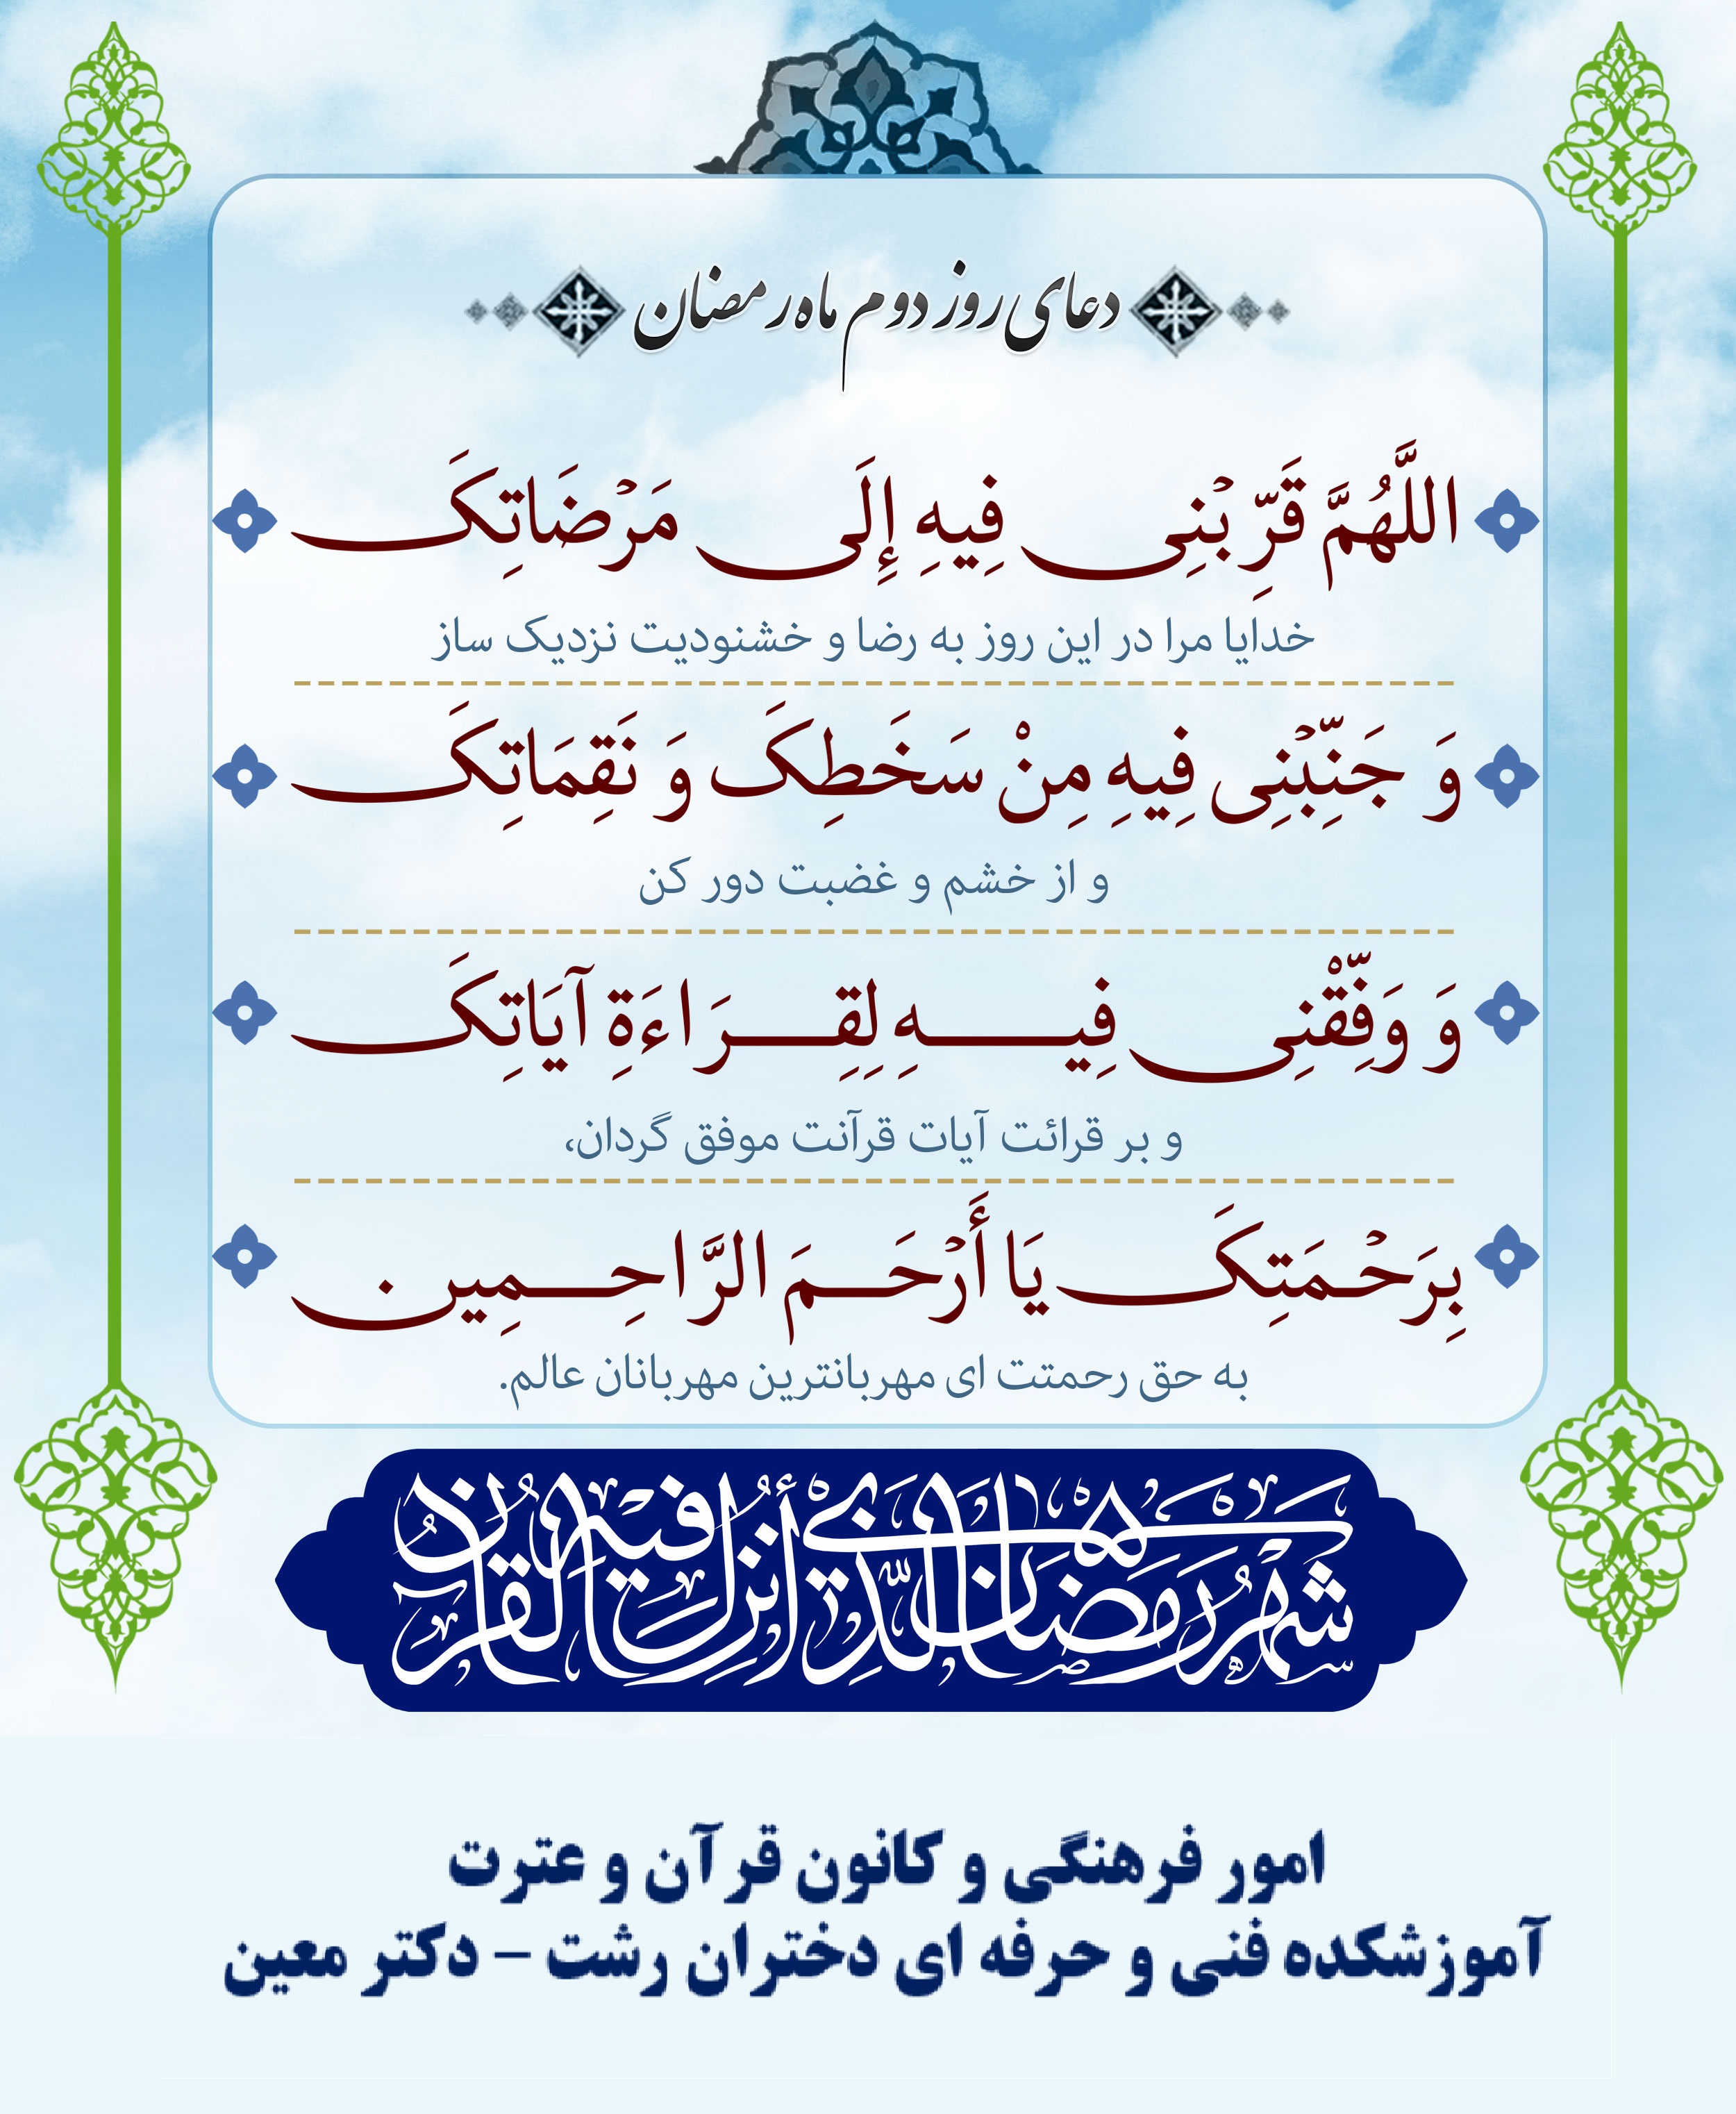 دعای روز دوم ماه رمضان
اللَّهُمَّ قَرِّبْنِی فِیهِ إِلَی مَرْضَاتِکَ
خدایا مرا در این روز به رضا و خشنودیت نزدیک ساز
وَ جَنِّبْنِی فِیهِ مِنْ سَخَطِکَ وَ نَقِمَاتِکَ
و از خشم و غضبت دور کن
وَ وَفِّقْنِی فِیهِ لِقِرَاءَةِ آیَاتِکَ
و بر قرائت آیات قرآنت موفق گردان،
بِرَحْمَتِکَ یَا أَرْحَمَ الرَّاحِمِین
به حق رحمتت ای مهربانترین مهربانان عالم.
شهر رمضان الذی أنزل فیه القرآن
امور فرهنگی و کانون قرآن و عترت
آموزشکده فنی و حرفه ای دختران رشت – دکتر معین